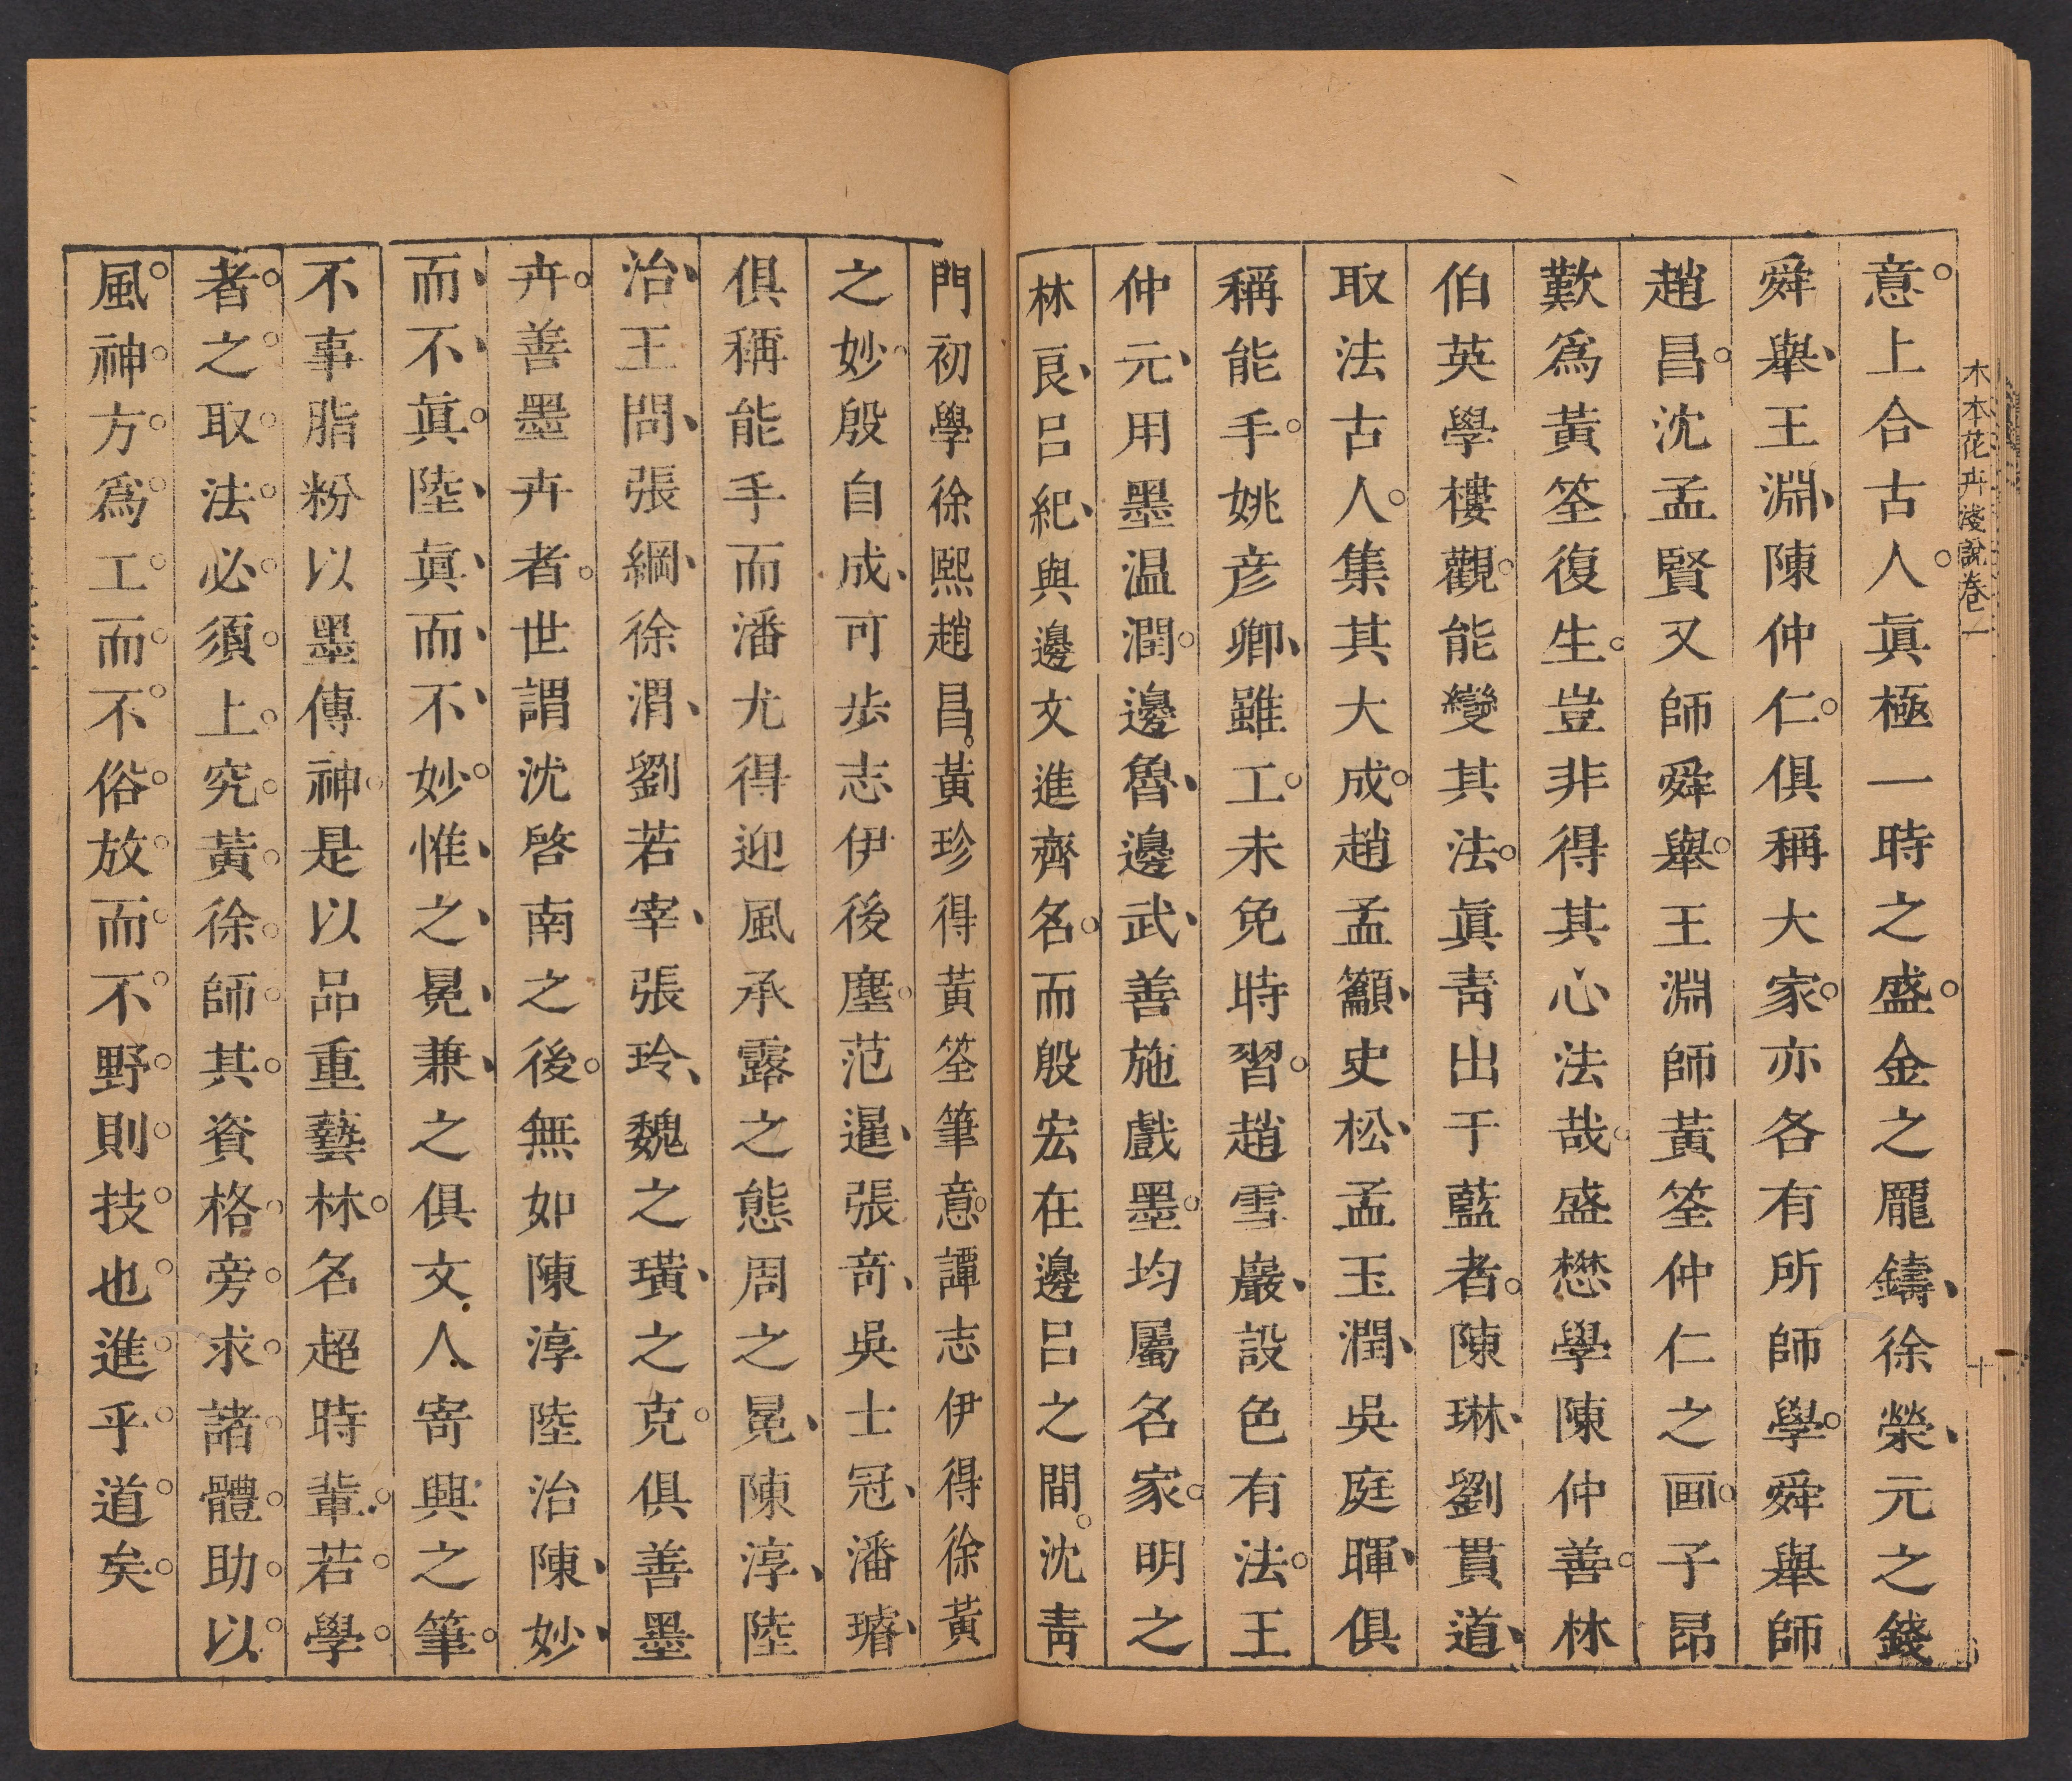 木本花卉淺說卷一
十
意上合古人眞極一時之盛金之龎鑄徐榮元之錢
舜舉王淵陳仲仁俱稱大家亦各有所師學舜舉師
趙昌沈孟賢又師舜舉王淵師黃筌仲仁之画子昂
歎爲黃筌復生豈非得其心法哉盛懋學陳仲善林
伯英學樓觀能變其法眞靑出于藍者陳琳劉貫道
取法古人集其大成趙孟籲史松孟玉潤吳庭暉俱
稱能手姚彦卿雖工未免時習趙雪巖設色有法王
仲元用墨温潤邊魯邊武善施戲墨均屬名家明之
林良呂紀與邊文進齊名而殷宏在邊呂之間沈靑
門初學徐熙趙昌黃珍得黃筌筆意譚志伊得徐黃
之妙殷自成可步志伊後塵范暹張奇吳士冠潘璿
俱稱能手而潘尤得迎風承露之態周之冕陳淳陸
治王問張綱徐渭劉若宰張玲魏之璜之克俱善墨
卉善墨卉者世謂沈啓南之後無如陳淳陸治陳妙
而不眞陸眞而不妙惟之冕兼之俱文人寄興之筆
不事脂粉以墨傳神是以品重藝林名超時輩若學
者之取法必須上究黃徐師其資格旁求諸體助以
風神方爲工而不俗放而不野則技也進乎道矣